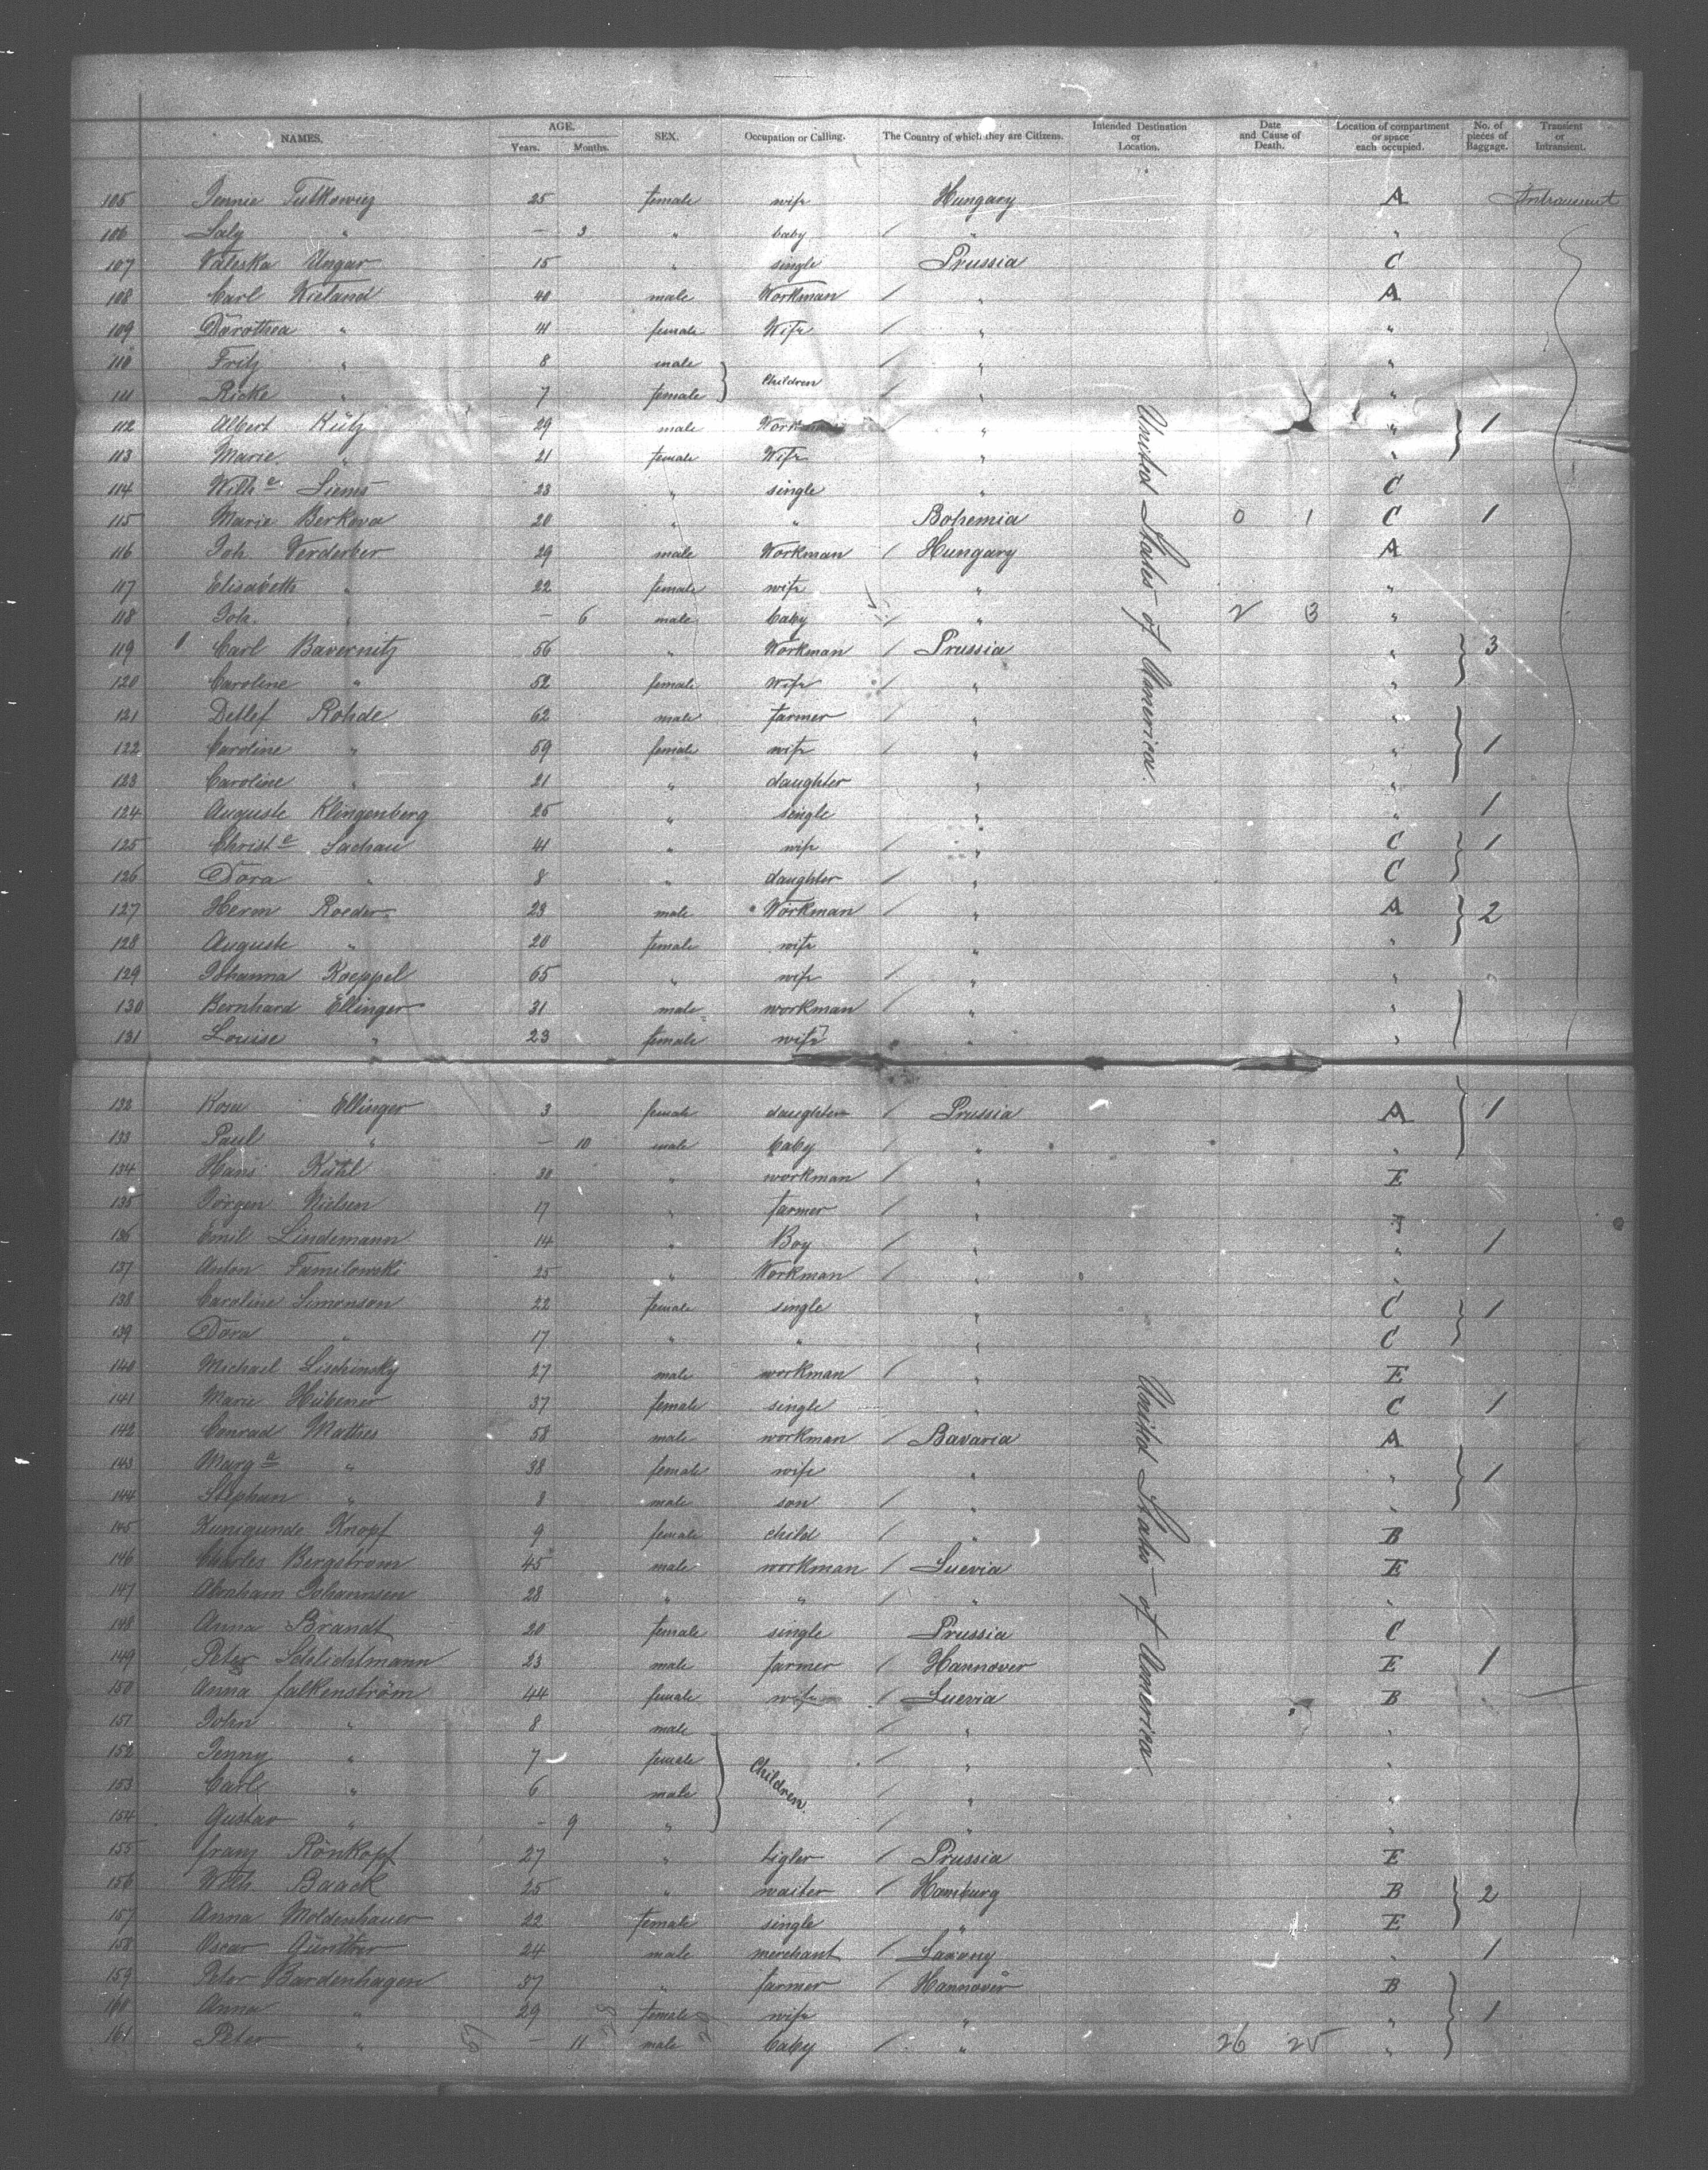 NAMES. AGE. Years. Months. SEX. Occupation or Calling. The Country of which they are Citizens. Intended Destination or Location. Date and Cause of Death. Location of compartment or space each occupied. No. of pieces of Baggage. Transient or Intransient.
105 Jennie 25 female wife Hungary A Intransient
106 Saly " — 3 " baby " "
107 Valeska Ungar 15 " single Prussia C
108 Carl Wieland 40 male Workman " A
109 Dorothea " 41 female Wife " "
110 Fritz " 8 male " "
111 Ricke " 7 female Children " "
112 Albert Kütz 29 male Workman " " 1
113 Marie " 21 female Wife " "
114 Wilhe Siems 23 " single " C
115 Marie Berkova 20 " " Bohemia 0 1 C 1
116 Joh. Verderber 29 male Workman Hungary A
117 Elisabeth " 22 female wife " "
118 Joh. " — 6 male baby " 2 3 "
119 Carl Bavernitz 56 " Workman Prussia " 3
120 Caroline " 52 female Wife " "
121 Detlef Rohde 62 male farmer " "
122 Caroline " 59 female wife " " 1
123 Caroline " 21 " daughter " "
124 Auguste Klingenberg 25 " single " " 1
125 Christe Sachau 41 " wife " C 1
126 Dora " 8 " daughter " C
127 Herm Roeder 23 male Workman " A 2
128 Auguste " 20 female wife " "
129 Johanna Koeppel 65 " wife " "
130 Bernhard Ellinger 31 male workman " "
131 Louise " 23 female wife " "
United States of America.
132 Ellinger 3 female daughter Prussia A 1
133 Paul " — 10 male baby " "
134 Hans Kühl 30 " workman " E
135 Jörgen Nielsen 17 " farmer "
136 Emil Lindemann 14 " Boy " " 1
137 Anton Familowski 25 " Workman " "
138 Caroline Simonson 22 female single " C 1
139 Dora " 17 " " " C
140 Michael Lischinsky 27 male workman " E
141 Marie Hübener 37 female single " C 1
142 Conrad Matties 58 male workman Bavaria A
143 Marge " 38 female wife " " 1
144 Stephan " 8 male son " "
145 Kunigunde Knopf 9 female child " B
146 Charles Bergstrom 45 male workman Suevia E
147 Abraham Johannsen 28 " " " "
148 Anna Brandt 20 female single Prussia C
149 Peter Schlichtmann 23 male farmer Hannover E 1
150 Anna Falkenström 44 female wife Suevia B
151 John " 8 male " "
152 Jenny " 7 female " "
153 Carl " 6 male Children. " "
154 Gustav " — 9 " " "
155 Franz Rönkopf 27 " tigler Prussia E
156 Wilh. Baack 25 " waiter Hamburg B 2
157 Anna Moldenhauer 22 female single " E
158 Oscar Günther 24 male merchant Saxony " 1
159 Peter Bardenhagen 37 " farmer Hannover B
160 Anna " 29 female wife " " 1
161 Peter " — 11 male baby " 26 25 "
United States of America.